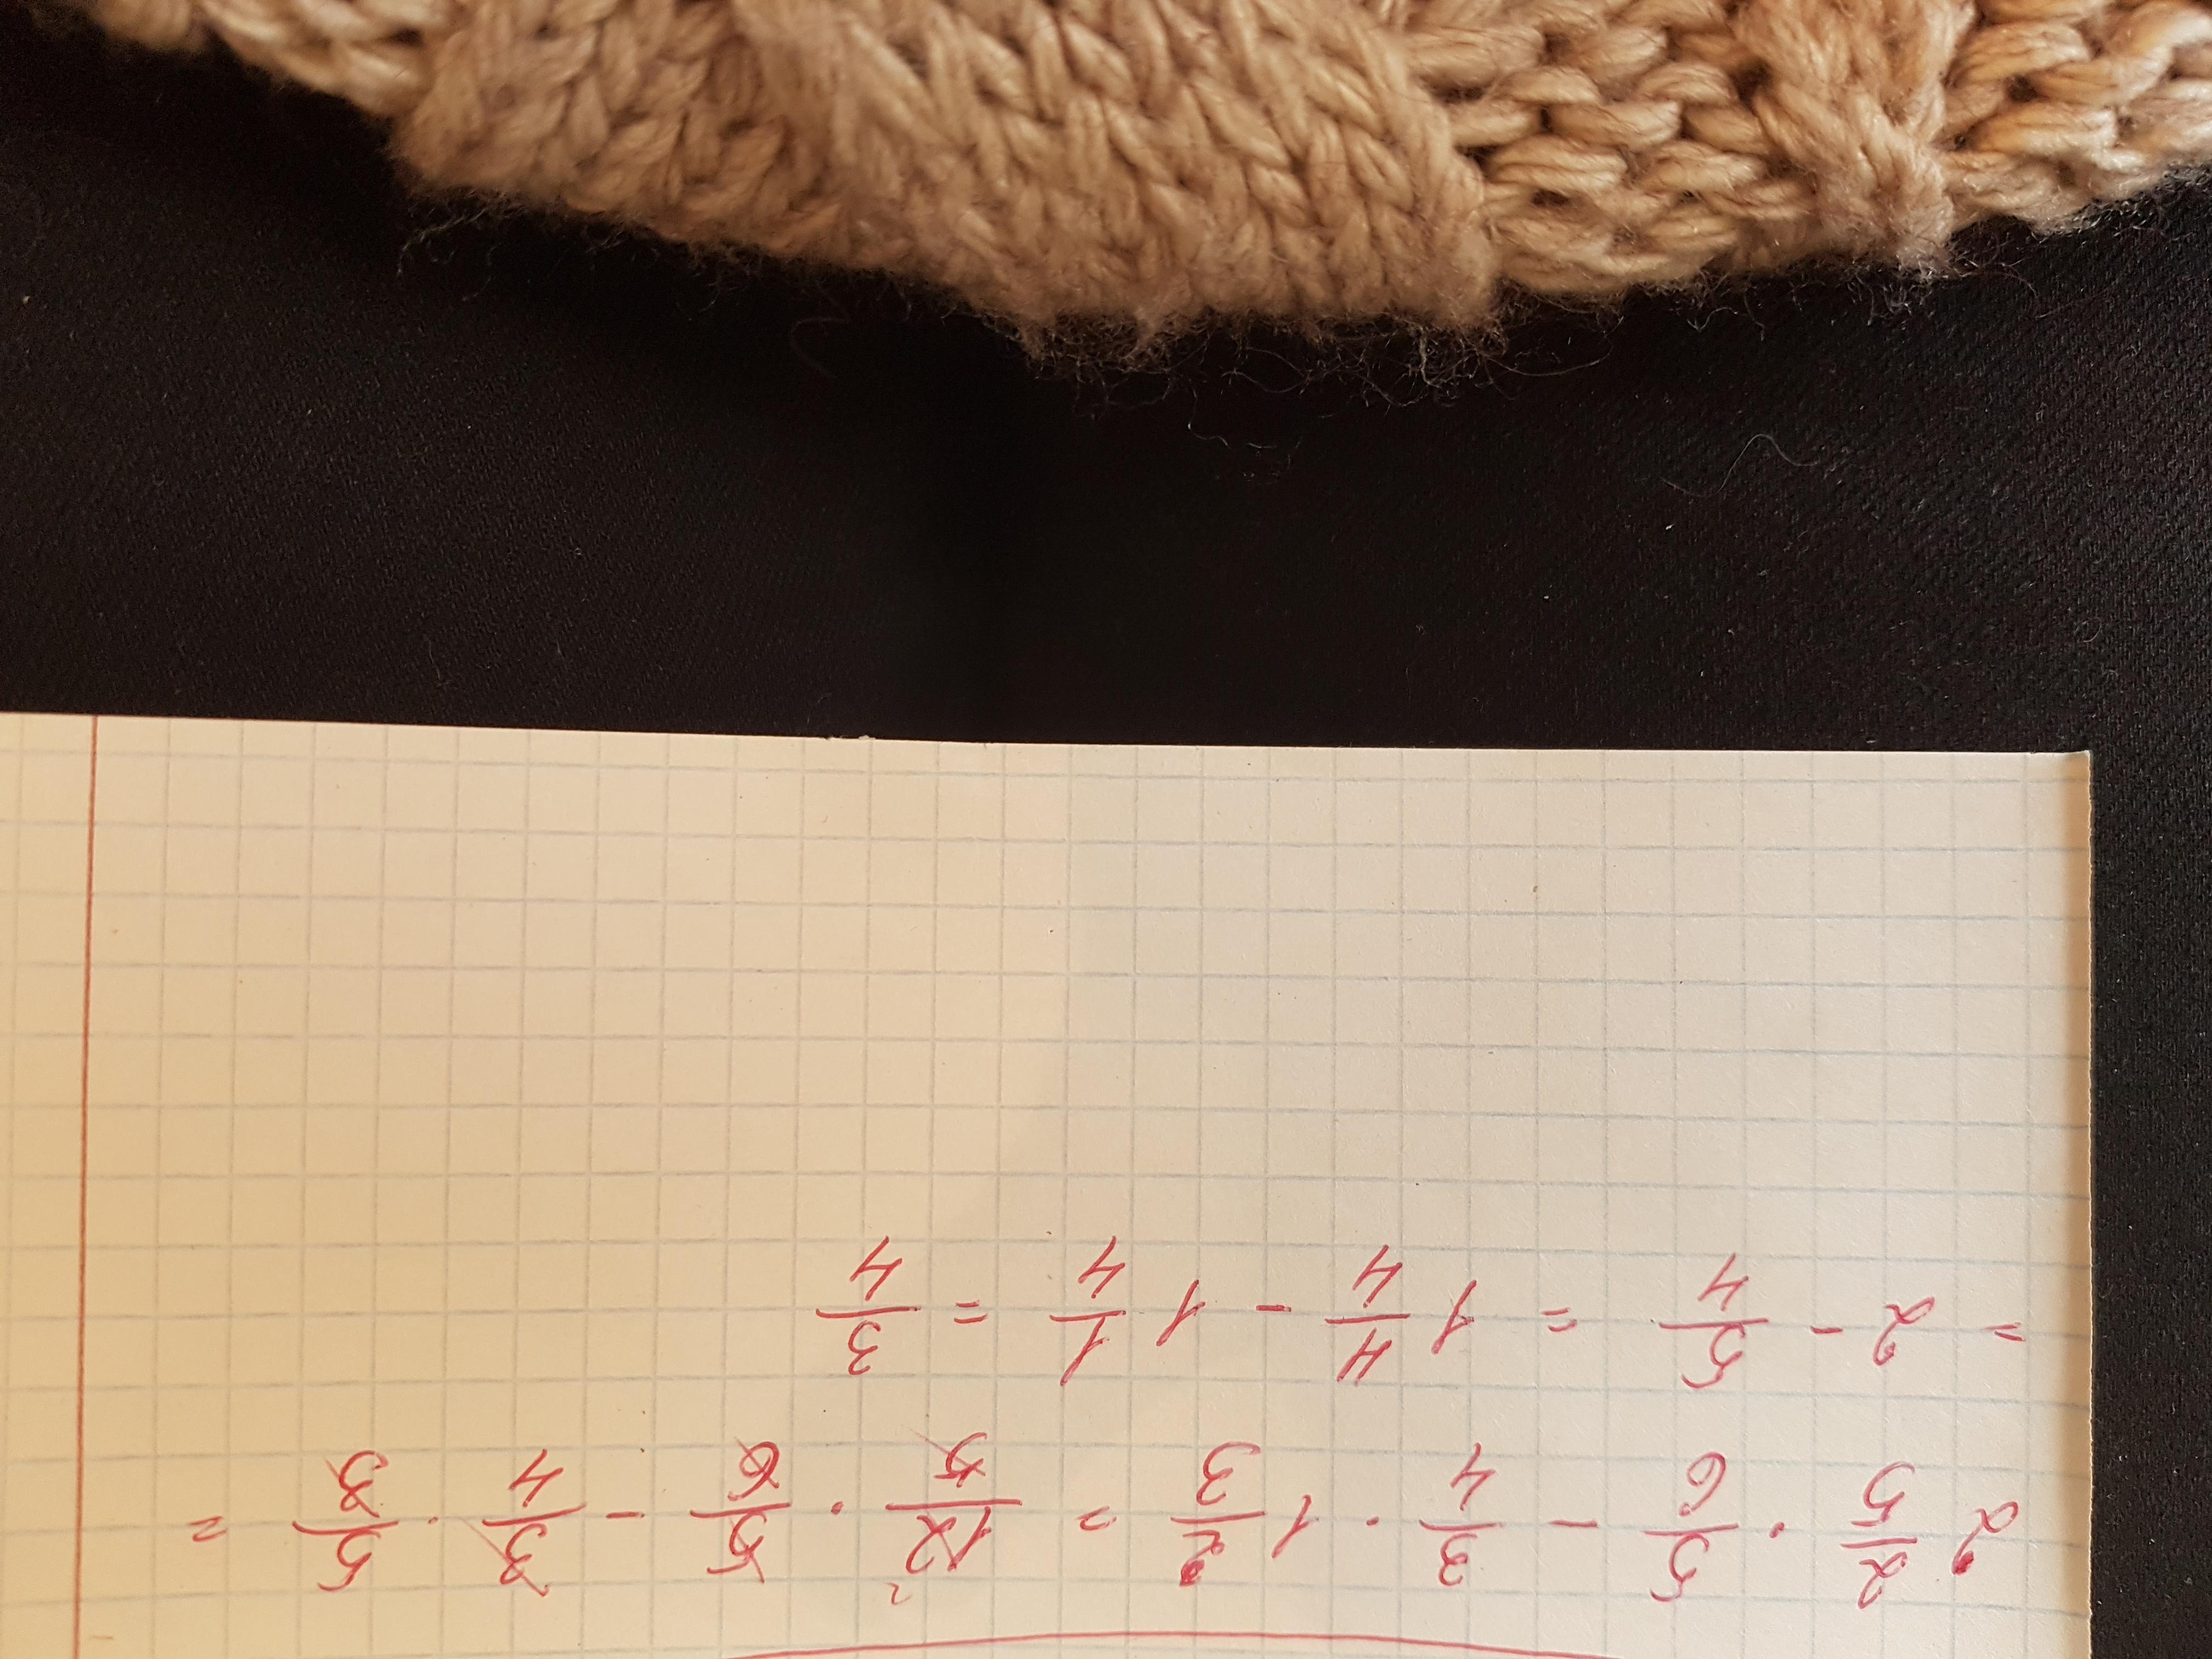 2 2/5 · 5/6 - 3/4 · 1 2/3 = 12/5 · 5/6 - 3/4 · 5/3 =
= 2 - 5/4 = 1 4/4 - 1 1/4 = 3/4